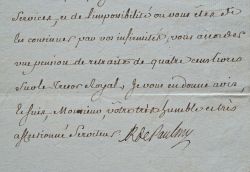 Services, et de l'impossibilité ou vous êtes de
les continuer par vos infirmités, vous accorder
une pension de retraite de quatre cens livres
sur le Tresor Royal, Je vous en donne avis,
Je suis, Monsieur votre très humble et très
affectionné Serviteur